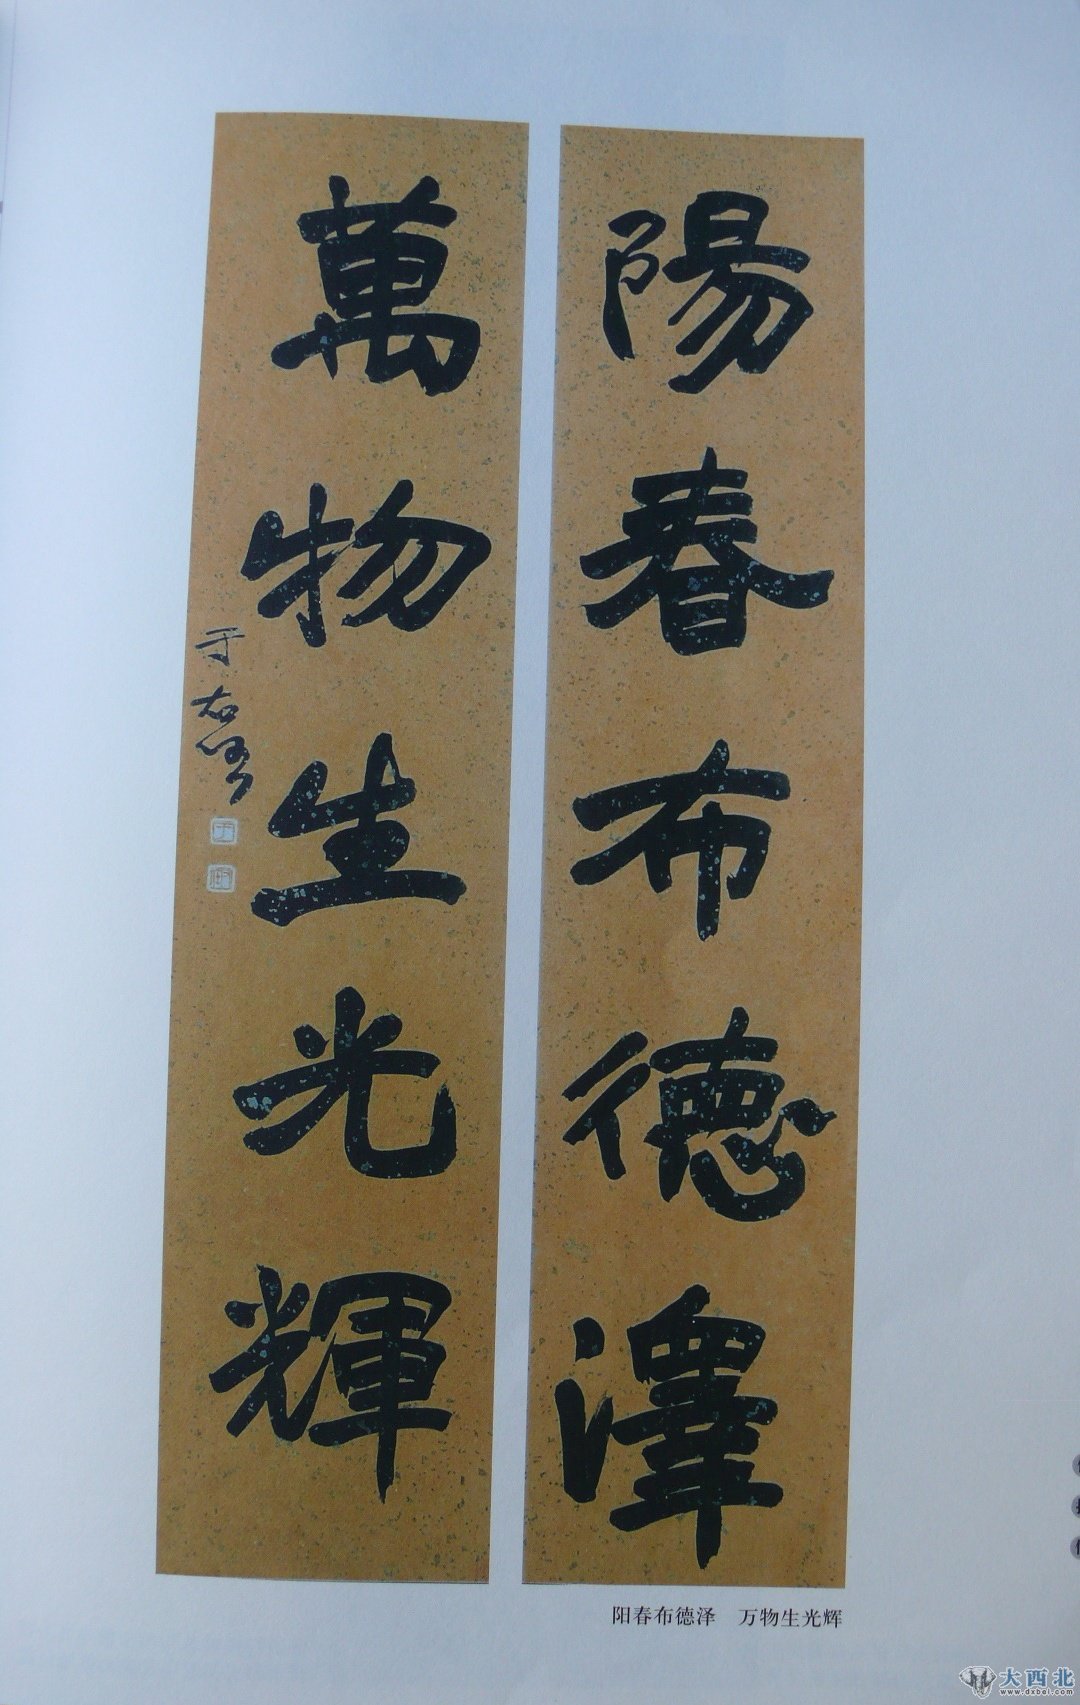 陽春布德澤
萬物生光輝
于右任
阳春布德泽 万物生光辉
大西北
www.dxbei.com